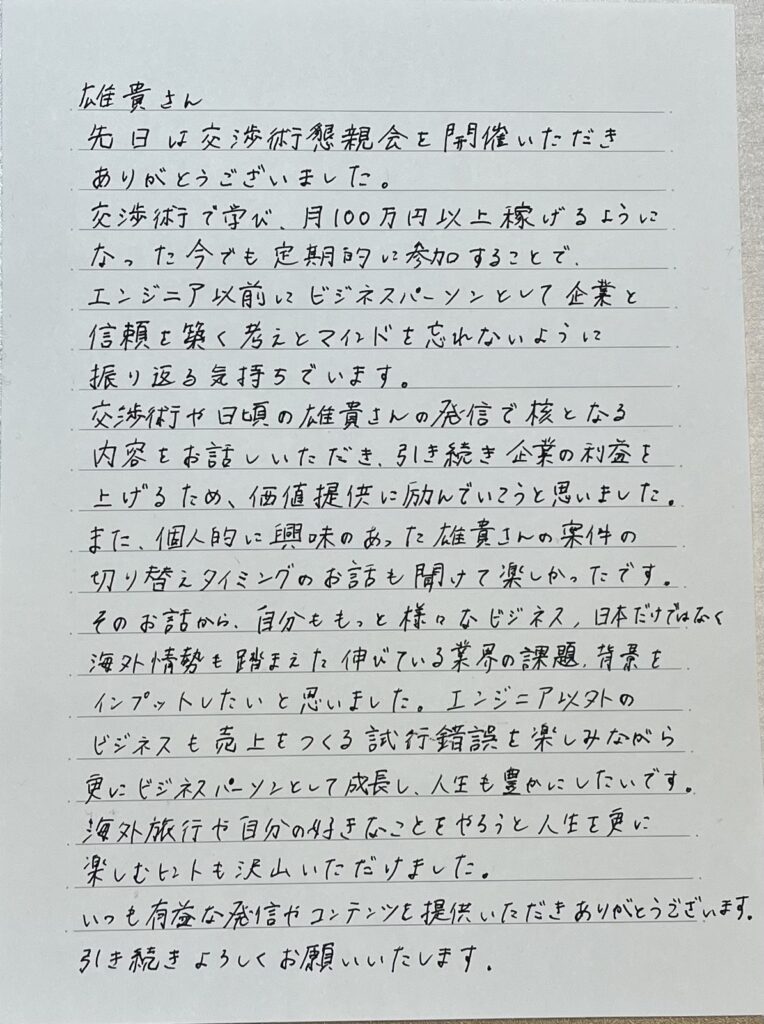 雄貴さん
先日は交渉術懇親会を開催いただき
ありがとうございました。
交渉術で学び、月100万円以上稼げるように
なった今でも定期的に参加することで、
エンジニア以前にビジネスパーソンとして企業と
信頼を築く考えとマインドを忘れないように
振り返る気持ちでいます。
交渉術や日頃の雄貴さんの発信で核となる
内容をお話しいただき、引き続き企業の利益を
上げるため、価値提供に励んでいこうと思いました。
また、個人的に興味のあった雄貴さんの案件の
切り替えタイミングのお話も聞けて楽しかったです。
そのお話から、自分ももっと様々なビジネス、日本だけではなく
海外情勢も踏まえた伸びている業界の課題、背景を
インプットしたいと思いました。エンジニア以外の
ビジネスも売上をつくる試行錯誤を楽しみながら
更にビジネスパーソンとして成長し、人生も豊かにしたいです。
海外旅行や自分の好きなことをやろうと人生を更に
楽しむヒントも沢山いただけました。
いつも有益な発信やコンテンツを提供いただきありがとうございます。
引き続きよろしくお願いいたします。